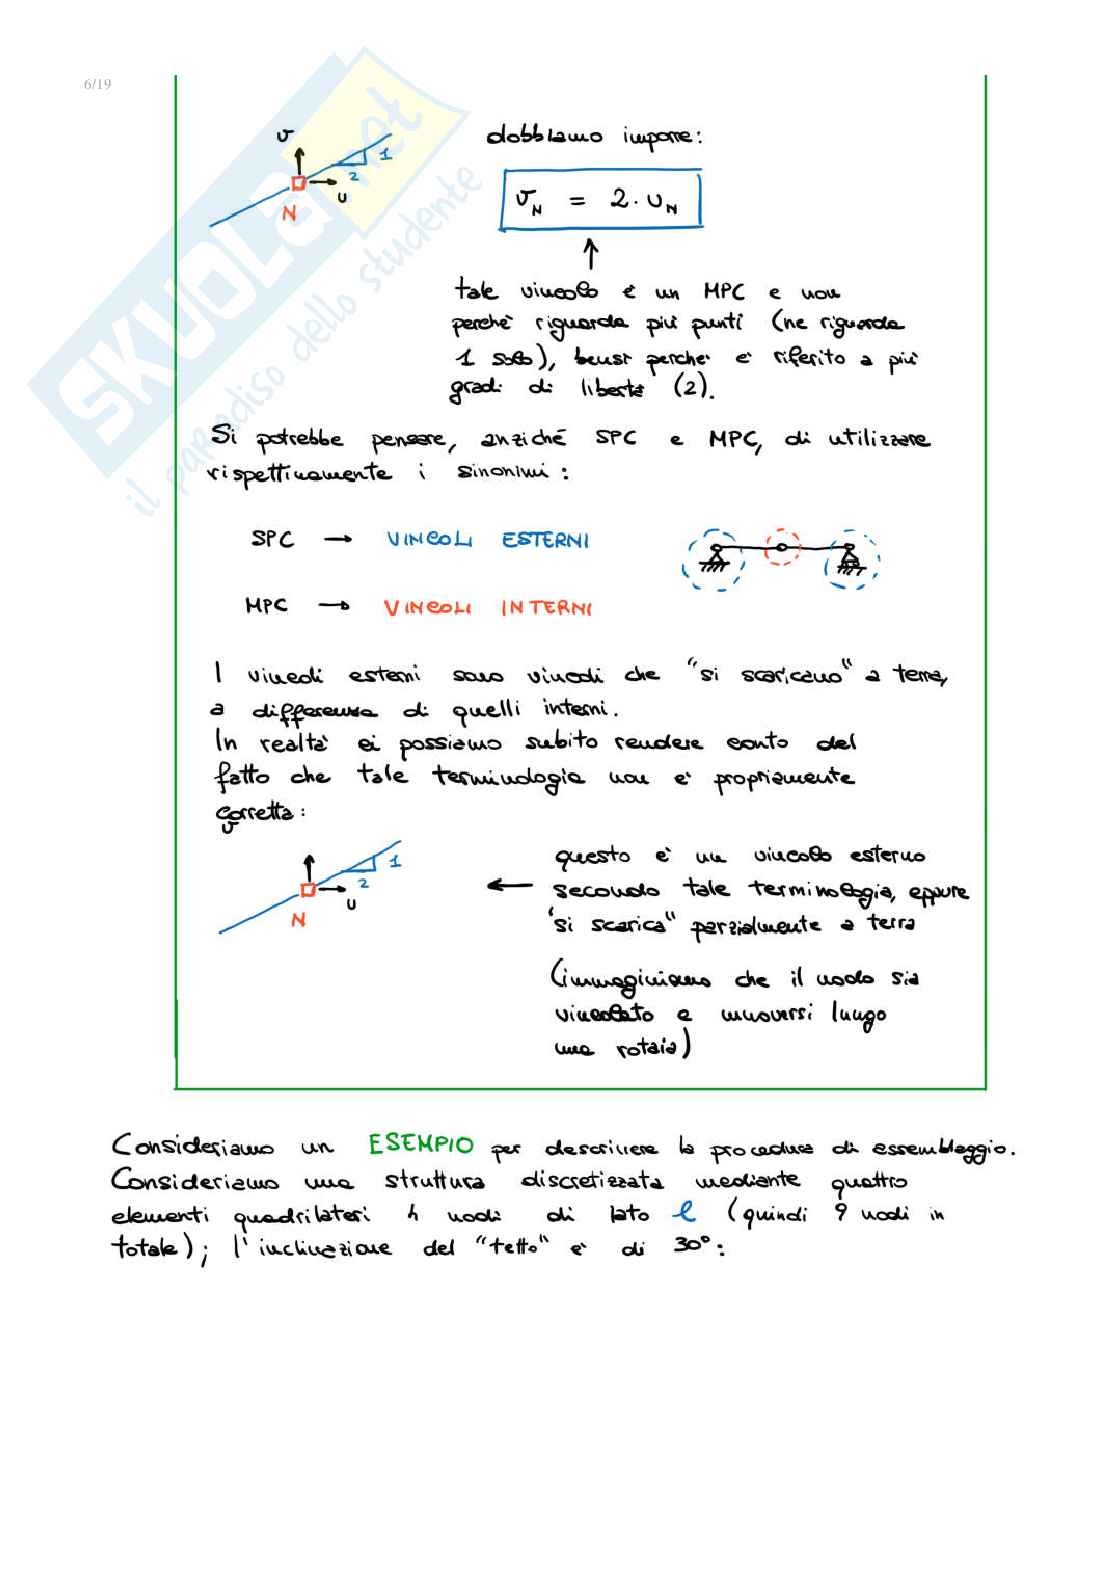 6/19
SKUOLA.net
il paradiso dello studente
v
1
2
u
N
dobbiamo imporre:
v_N = 2·u_N
tale vincolo è un MPC e non
perchè riguarda più punti (ne riguarda
1 solo), bensì perchè è riferito a più
gradi di libertà (2).
Si potrebbe pensare, anziché SPC e MPC, di utilizzare
rispettivamente i sinonimi:
SPC → VINCOLI ESTERNI
MPC → VINCOLI INTERNI
I vincoli esterni sono vincoli che "si scaricano" a terra,
a differenza di quelli interni.
In realtà ci possiamo subito rendere conto del
fatto che tale terminologia non è propriamente
corretta:
v
1
2
u
N
questo è un vincolo esterno
secondo tale terminologia, eppure
"si scarica" parzialmente a terra
(immaginiamo che il nodo sia
vincolato a muoversi lungo
una rotaia)
Consideriamo un ESEMPIO per descrivere la procedura di assemblaggio.
Consideriamo una struttura discretizzata mediante quattro
elementi quadrilateri 4 nodi di lato l (quindi 9 nodi in
totale); l'inclinazione del "tetto" è di 30°: